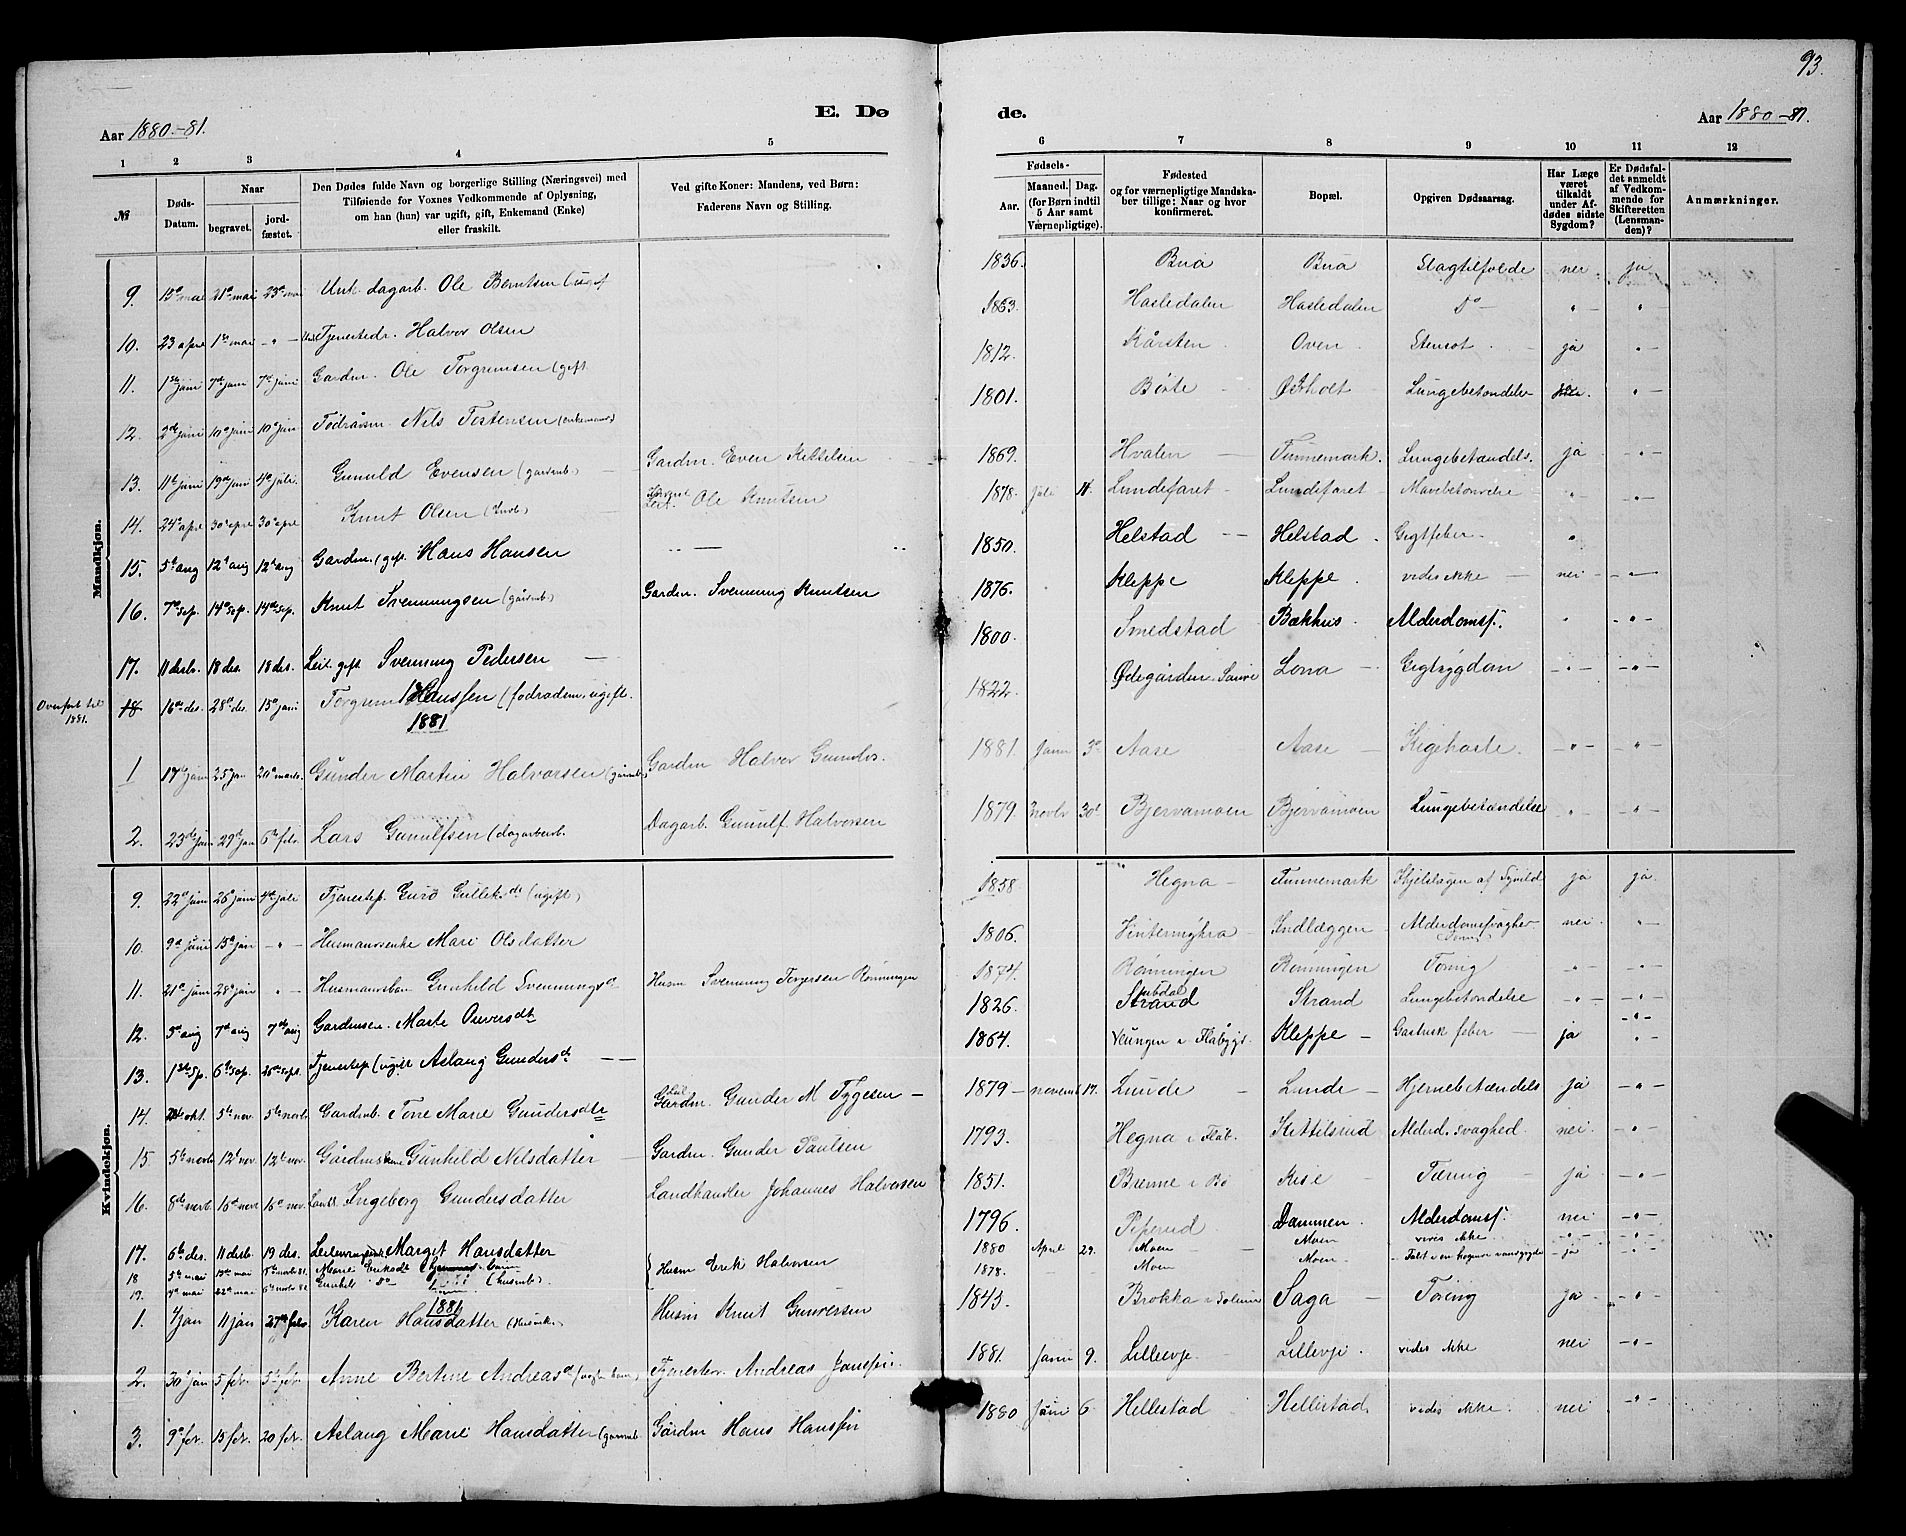 93.
E. Dø de.
Aar 1880.-81.
Aar 1880-81.
1 2 3 4 5 6 7 8 9 10 11 12
№
Døds-Datum.
Naar
begravet.
jordfæstet.
Den Dødes fulde Navn og borgerlige Stilling (Næringsvei) med
Tilføiende for Voxnes Vedkommende af Oplysning,
om han (hun) var ugift, gift, Enkemand (Enke)
eller fraskilt.
Ved gifte Koner: Mandens, ved Børn:
Faderens Navn og Stilling.
Fødsels-
Aar.
Maaned. Dag.
(for Børn indtil
5 Aar samt
Værnepligtige).
Fødested
og for værnepligtige Mandskaber tillige: Naar og hvor
konfirmeret.
Bopæl.
Opgiven Dødsaarsag.
Har Læge
været
tilkaldt
under Afdødes sidste
Sygdom?
Er Dødsfaldet anmeldt
af Vedkommende for
Skifteretten
(Lensmanden)?
Anmærkninger.
Mandkjøn.
9. 15de mai 21de mai 23de mai Unk. dagarb. Ole Berntsen (ugift 1836. Bua Bua Slagtilfælde nei ja
10. 23 apr 1ste mai - " - Tjenestedr. Halvor Olsen 1863. Hasledalen Hasledalen Do - " - "
11. 1ste juni 7de juni 7de juni Gardm. Ole Torgrimsen (gift 1812. Kårsten Oven Stensot ja "
12. 2de juni 10de juni 10de juni Fødrådsm. Nils Tostensen (enkemand) 1801. Bøile Østholt Lungebetændelse "
13. 11te juni 19de juni 4de juli Gunuld Evensen (gardmb.) Gardm. Even Kittelsen 1869. Hvalen Tinnemark. Lungebetændels. ja "
14. 24de apr 30de apr 30de apr Knut Olsen Ole Knutsen 1878. Juli 11. Lundefaret Lundefaret Mavebetændelse " "
15. 5te aug 12te aug 12te aug Gardm. (gift Hans Hansen 1850. Helstad Helstad Gigtfeber "
16. 7de sep. 14de sep. 14de sep. Knut Svenningsen (gårdmb.) Gardm. Svenning Knutsen 1876. Kleppe Kleppe. vides ikke nei - " -
17. 11 desb. 18 des. 18 des. Leil. gift Svenning Pedersen 1800. Smedstad Bækhus. Alderdomsf. " - " -
Overført til
1881.
18 16de des. 28de des. 15de jani Torgrim Hanssen (fodradsm. ugift. 1822. Ødegården. Sauv Lona Gigtsygdom - " - - " -
1881
1 17de jan 25de jan 20de marts. Gunder Martin Halvorsen (gårdmb) Gardm Halvor Gunders. 1881. Janu 3de Aase Aase Kighoste. - " - - " -
2. 23de jan 29de jan 6te febr. Lars Gunulfsen (dagarberb. Dagarb. Gunulf. Halvorsen 1879. Novbr 30te Bjervamoen Bjervamoen Lungebetændelse " - " -
Kvindekjøn.
9. 22de juni 26de juni 4de juli Tjenestep. Guro Gulleksdr (ugift) 1858 Hegna Tinnemark ja ja.
10. 9de juni 15de juni - " - Husmandsenke Mari Olsdatter 1806. Indlæggen Alderdomssvaghed nei "
11. 21de juni 28de juni " Husmandsbarn Gunhild Svenningsd. Husm Svenning Torgersen Rønningen 1874. Rønningen Rønningen Tæring - " - - " -
12. 3de aug 7de aug 7de aug Marte 1826. Strand Strand Lungebetændelse - " - - " -
13. 1ste sep. 6te sep. 26de sept. Tjenestep (ugift Aslaug Gundersdr. 1864. Kleppe Gastrisk feber ja "
14. okt. 5te nov. 5te novb. Gardmb. Tone Marie Gundersdtr Gardm. Gunder M Tygesen 1879 novemb 17. Lunde Lunde Hjernebetændels ja - " -
15 5te novb 12te nov. 12te nov. Gårdmskone Gunhild Nilsdatter Gardm. Gunder Paulsen 1793. Hegna i Flåb. Kittilsrud Alderd. svaghed nei - " -
16. 8de novb. 16de nov 16de nov. Ingeborg Gundersdatter Landhandler Johannes Halvorsen 1851. i Bø Kise Tæring ja - " -
17. 6te des. 11 desb. 19 des. Marget Hansdatter 1796. Peperud Dammen. Alderdomsf. nei - " -
18 5te mai Marie Eriksdt Husm Erik Halvorsen 1880 April 29. Moen Moen vides ikke - " - - " -
19. Gunhild do (husmb). 1878. Moen Moen Faldt i en ja - " -
1881
1. 4/jan 11 jan 27de febr. Karen Hansdatter Husm Knut Gunversen 1843. Brokka i Solum Saga Tæring ja - " -
2. 30 jan 5 febr. 5te febr. Anne Bertine Andreasd. Tjenestekar Andreas Jansen. 1881. Janu 9. Lillevje. Lillevje. vides ikke nei - " -
3. 9de febr. 15 febr. 20 febr. Aslaug Marie Hansdatter (gårdmb Gårdm Hans Hansen 1880 Juni 6. Hellestad Hellestad. vides ikke. nei - " -